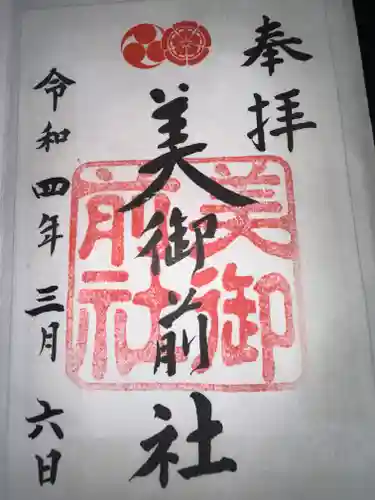 奉拝
美御前社
美御前社
令和四年三月六日